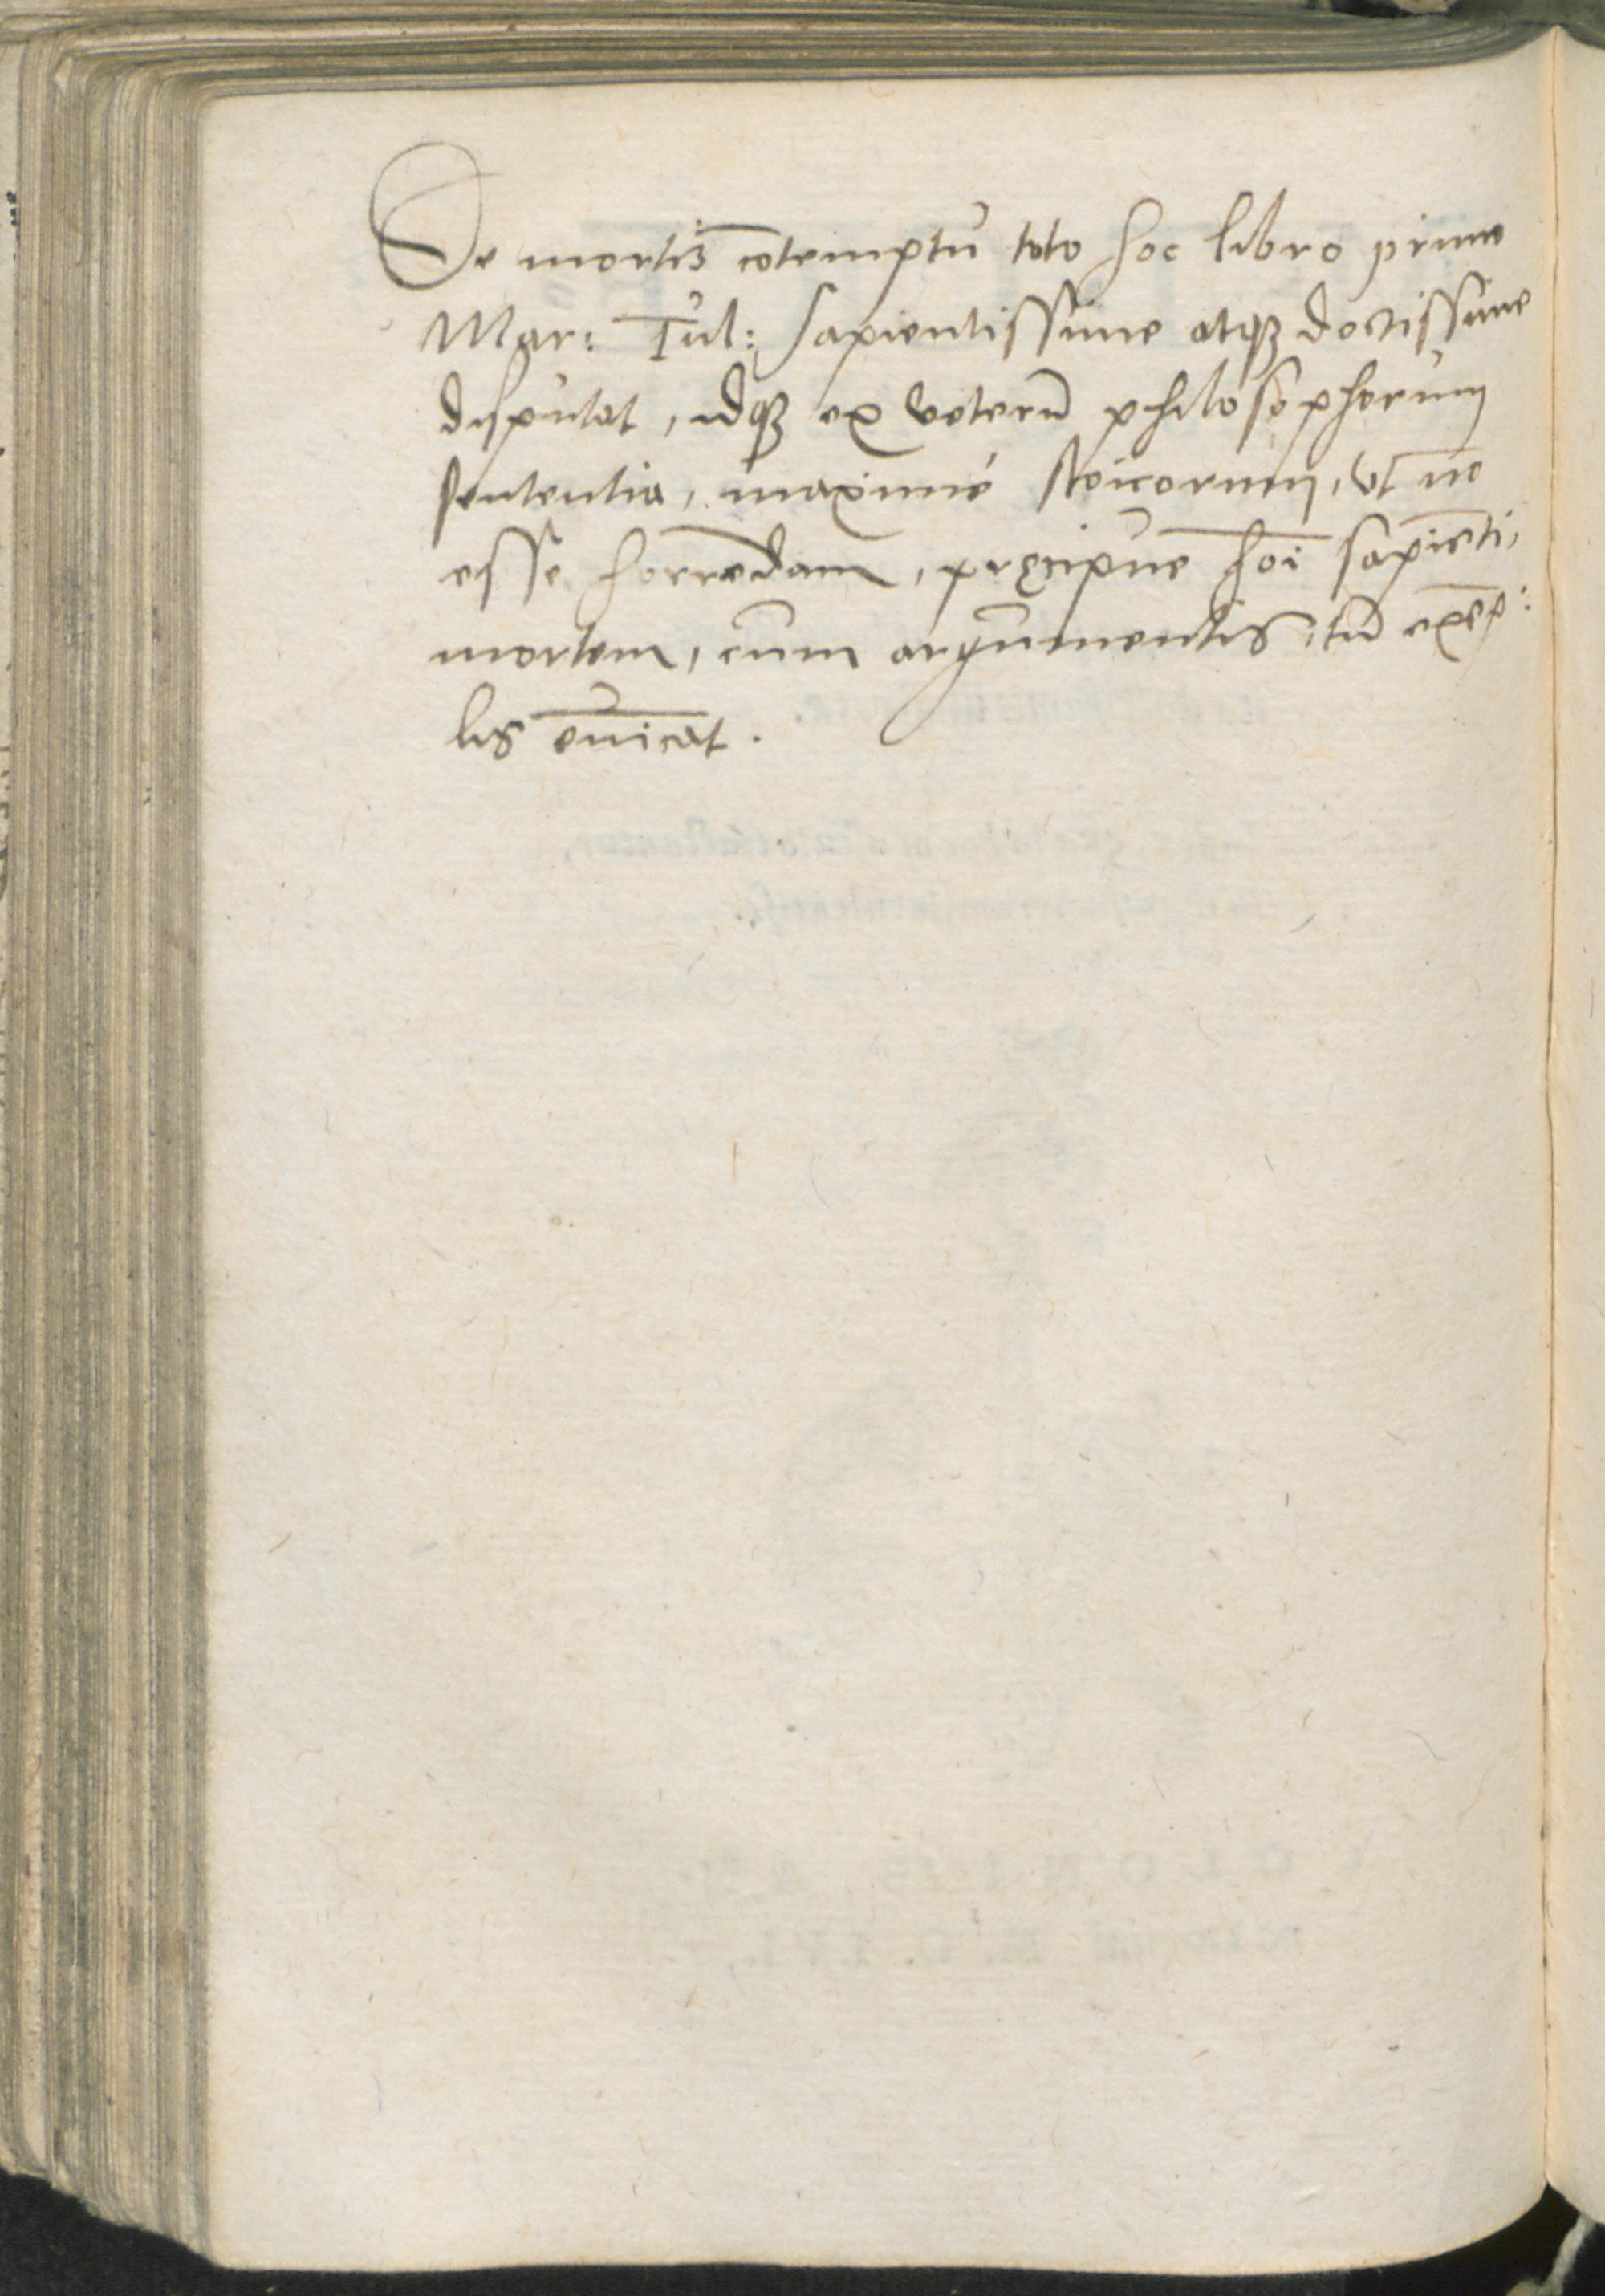 De mortis cõtemptu toto hoc libro primo
Mar: Tul: sapientissime atqꝫ doctissime
disputat, idqꝫ ex veterũ philosophorum
sententia, maximè stoicorum, vt nõ
esse horrẽdam, præcipue hoĩ sapiẽti,
mortem, cum argumentis, tũ exẽp:
lis cõuĩcat.